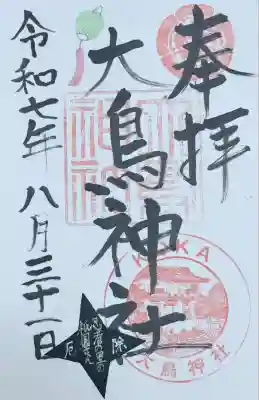 奉拝
大鳥神社
令和七年 八月三十一日
KOKA
大鳥神社
厄除